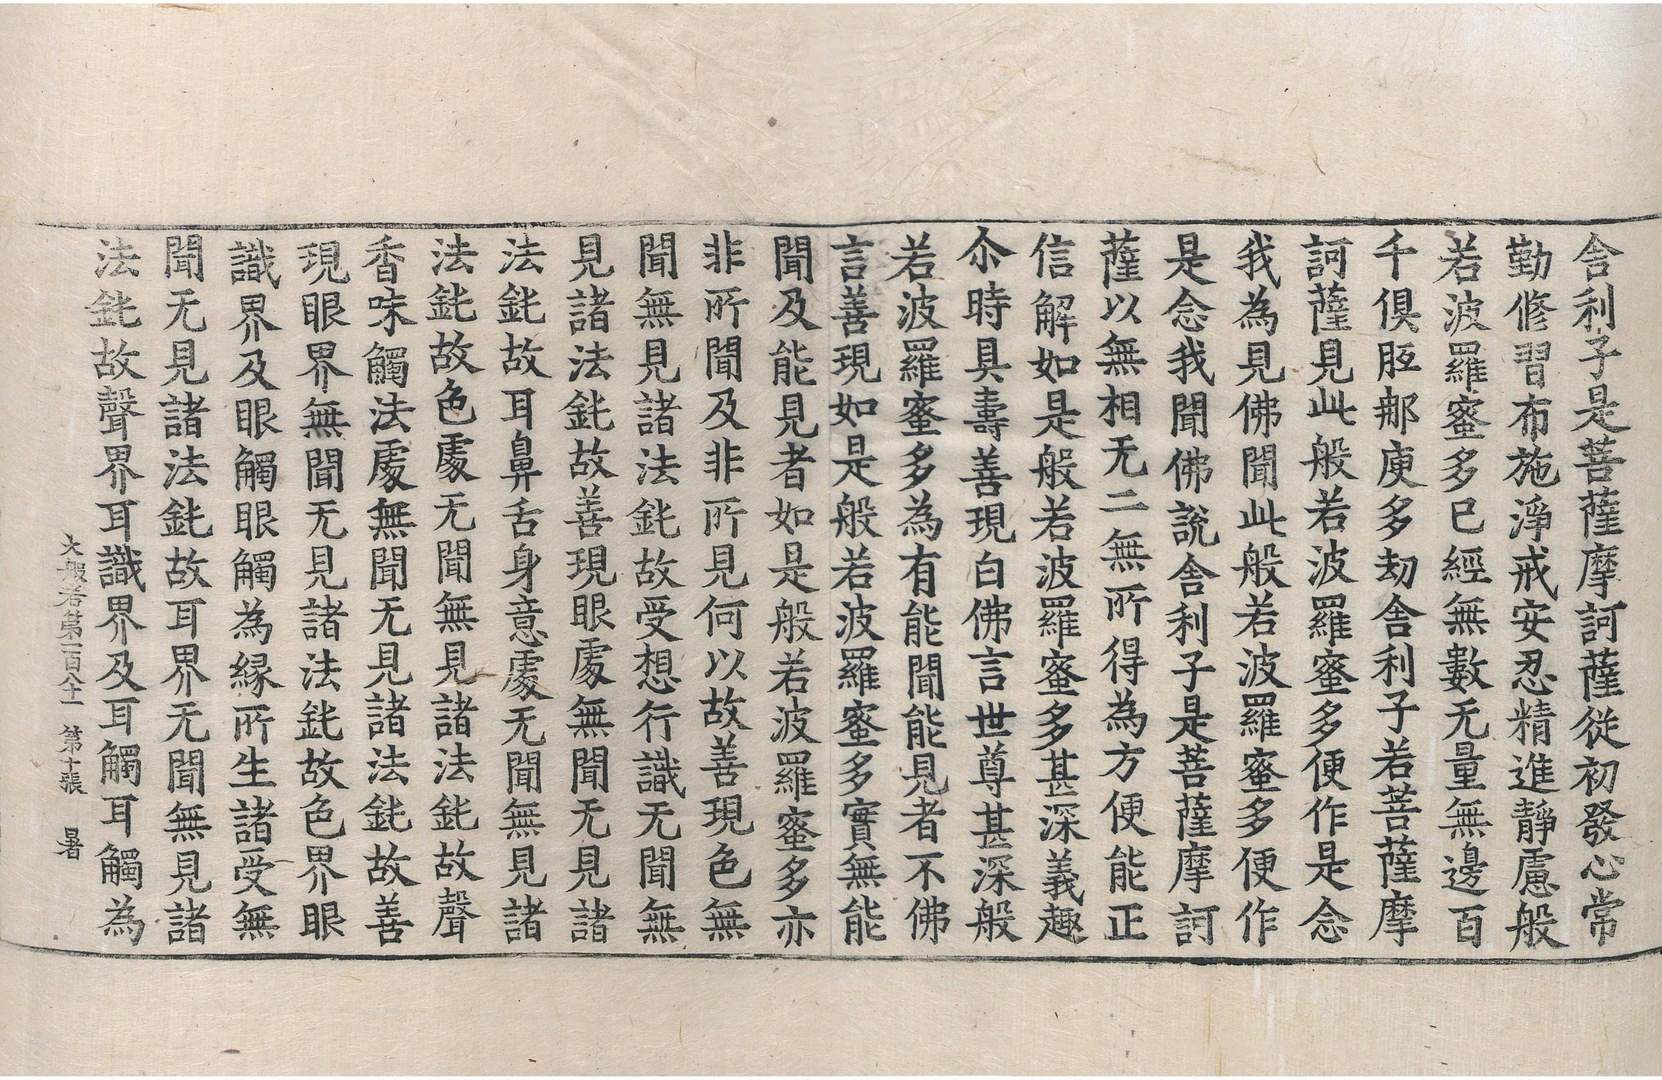 舎利子是菩薩摩訶薩從初發心常
勤修習布施淨戒安忍精進靜慮般
若波羅蜜多已經無數无量無邊百
千俱胝那庾多劫舎利子若菩薩摩
訶薩見此般若波羅蜜多便作是念
我為見佛聞此般若波羅蜜多便作
是念我聞佛說舎利子是菩薩摩訶
薩以無相无二無所得為方便能正
信解如是般若波羅蜜多甚深義趣
尒時具壽善現白佛言世尊甚深般
若波羅蜜多為有能聞能見者不佛
言善現如是般若波羅蜜多實無能
聞及能見者如是般若波羅蜜多亦
非所聞及非所見何以故善現色無
聞無見諸法鈍故受想行識无聞無
見諸法鈍故善現眼處無聞无見諸
法鈍故耳鼻舌身意處无聞無見諸
法鈍故色處无聞無見諸法鈍故聲
香味觸法處無聞无見諸法鈍故善
現眼界無聞无見諸法鈍故色界眼
識界及眼觸眼觸為緣所生諸受無
聞无見諸法鈍故耳界无聞無見諸
法鈍故聲界耳識界及耳觸耳觸為
大般若第一百八十一 第十張 暑